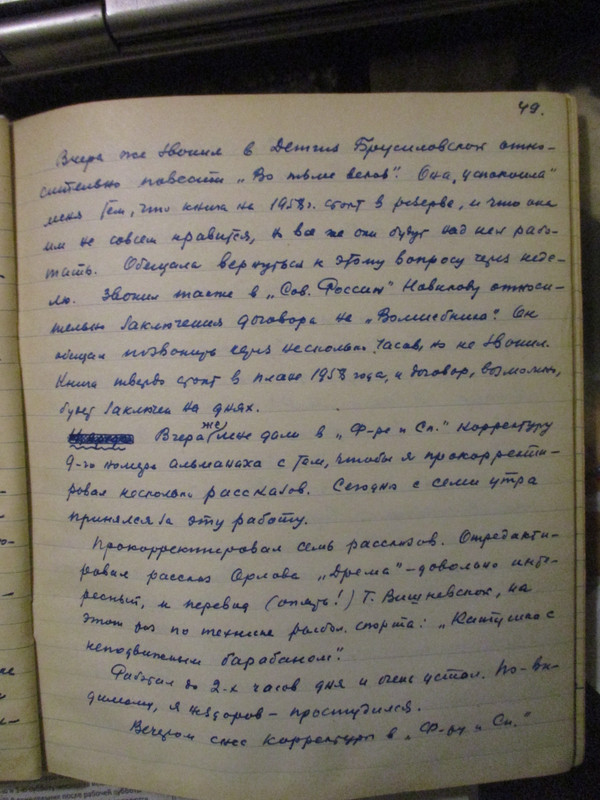 49.
Вчера же звонил в Детгиз Брусиловской отно-
сительно повести „Во тьме веков". Она „успокоила"
меня тем, что книга на 1958 г. стоит в резерве, и что она
им не совсем нравится, но все же они будут над ней рабо-
тать. Обещала вернуться к этому вопросу через неде-
лю. Звонил также в „Сов. Россию" Новикову относи-
тельно заключения договора на „Волшебника". Он
обещал позвонить через несколько часов, но не звонил.
Книга твердо стоит в плане 1958 года, и договор, возможно,
будет заключен на днях.
Вчера же мне дали в „Ф-ре и Сп." корректуру
9-го номера альманаха с тем, чтобы я прокорректи-
ровал несколько рассказов. Сегодня с семи утра
принялся за эту работу.
Прокорректировал семь рассказов. Отредакти-
ровал рассказ Орлова „Дрема" – довольно инте-
ресный, и перевод (опять!) Т. Вишневской, на
этот раз по технике рыбол. спорта: „Катушка с
неподвижным барабаном".
Работал до 2-х часов дня и очень устал. По-ви-
димому, я нездоров – простудился.
Вечером снес корректуры в „Ф-ру и Сп."